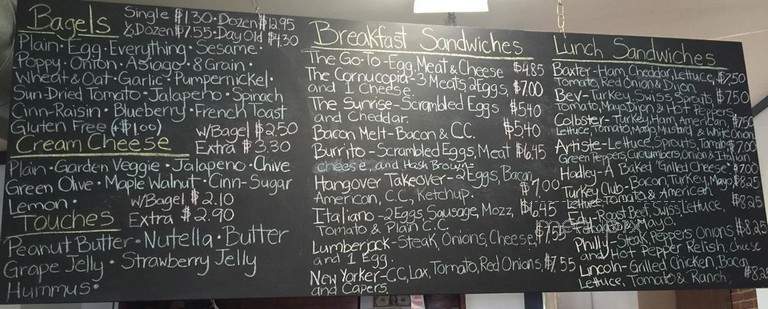 Bagels Single $1.30 • Dozen $12.95
½ Dozen $7.55 • Day Old $4.30
Plain • Egg • Everything • Sesame •
Poppy • Onion • Asiago • 8 Grain •
Wheat & Oat • Garlic • Pumpernickel •
Sun-Dried Tomato • Jalapeno • Spinach
Cinn-Raisin • Blueberry • French Toast
Gluten Free (+$1.00) w/Bagel $2.50
Cream Cheese Extra $3.30
Plain • Garden Veggie • Jalapeno • Chive
Green Olive • Maple Walnut • Cinn-Sugar
Lemon • w/Bagel $2.10
Touches Extra $2.90
Peanut Butter • Nutella • Butter
Grape Jelly • Strawberry Jelly
Hummus •
Breakfast Sandwiches
The Go-To-Egg, Meat & Cheese $4.85
The Cornucopia-3 Meats, 2 Eggs, $7.00
and 1 Cheese.
The Sunrise-Scrambled Eggs $5.40
and Cheddar.
Bacon Melt-Bacon & C.C. $5.40
Burrito-Scrambled Eggs, Meat $6.45
cheese, and Hash Brown
Hangover Takeover-2 Eggs, Bacon $7.00
American, C.C., Ketchup.
Italiano-2 Eggs, Sausage, Mozz, $6.45
Tomato & Plain C.C.
Lumberjack-Steak, Onions, Cheese, $7.55
and 1 Egg.
New Yorker-CC, Lox, Tomato, Red Onions, $7.55
and Capers.
Lunch Sandwiches
Baxter-Ham, Cheddar, Lettuce, $7.50
Tomato, Red Onion & Dijon
Bev-Turkey, Swiss, Sprouts, $7.50
Tomato, Mayo, Dijon & Hot Peppers
Colbster-Turkey, Ham, American,
Lettuce, Tomato, Mayo, Mustard & White Onion
Artiste-Lettuce, Sprouts, Tomato, $7.00
Green Peppers, Cucumbers, Onion & Italian
Hadley-A Baked "Grilled Cheese" $7.00
Turkey Club-Bacon, Turkey, Mayo $8.25
Lettuce, Tomato & American
Roast Beef, Swiss, Lettuce, $8.25
& Mayo.
Philly-Steak, Peppers, Onions $8.25
and Hot Pepper Relish. Cheese
Lincoln-Grilled Chicken, Bacon,
Lettuce, Tomato & Ranch.